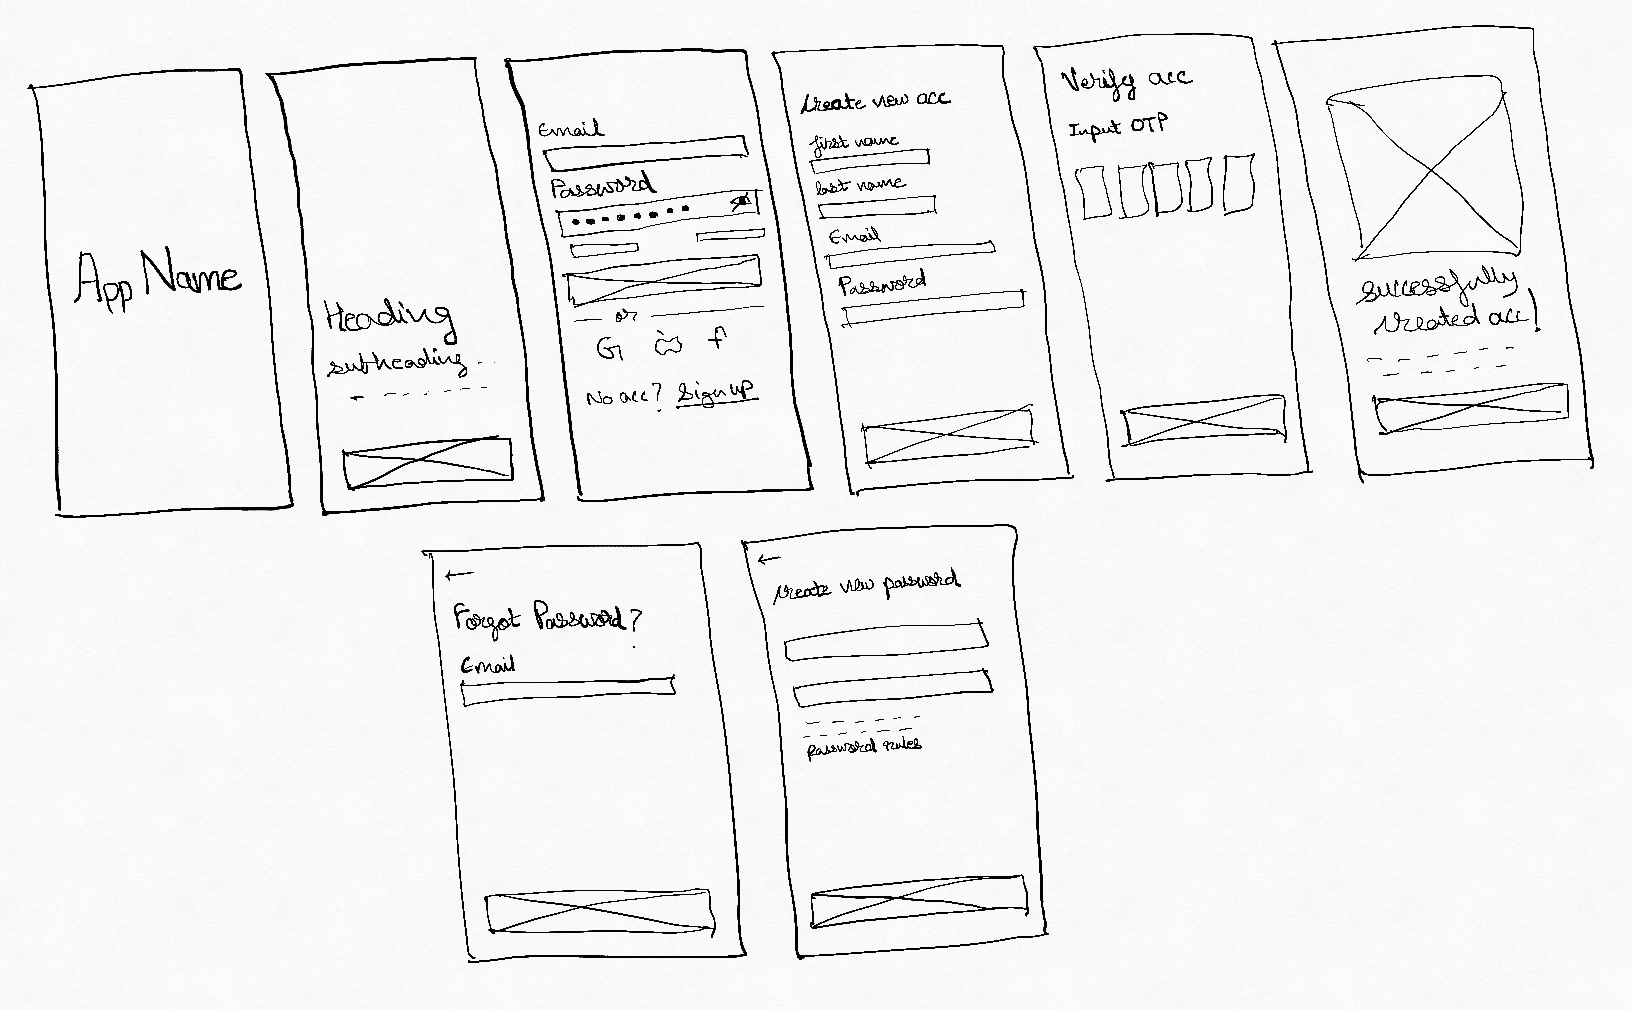 App Name
Heading
subheading
Email
Password
or
G f
No acc? Sign up
Create new acc
first name
last name
Email
Password
Verify acc
Input OTP
successfully
created acc!
Forgot Password?
Email
create new password
password rules